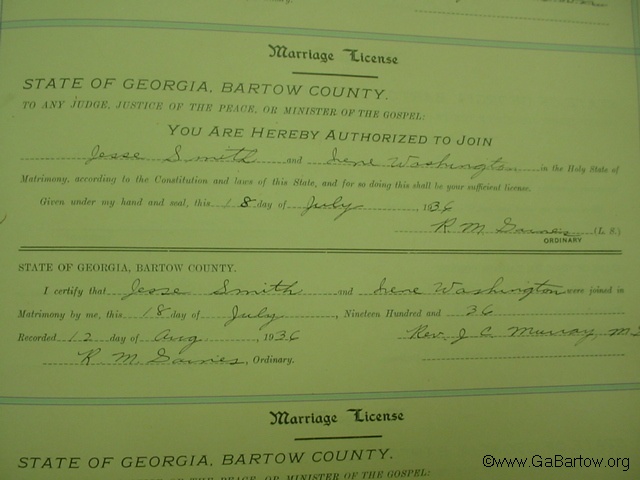 Marriage License
STATE OF GEORGIA, BARTOW COUNTY.
TO ANY JUDGE, JUSTICE OF THE PEACE, OR MINISTER OF THE GOSPEL:
YOU ARE HEREBY AUTHORIZED TO JOIN
Jesse Smith and Irene Washington in the Holy State of
Matrimony, according to the Constitution and laws of this State, and for so doing this shall be your sufficient license.
Given under my hand and seal, this 18 day of July 1936
R M Gaines (L. S.)
ORDINARY
STATE OF GEORGIA, BARTOW COUNTY.
I certify that Jesse Smith and Irene Washington were joined in
Matrimony by me, this 18 day of July, Nineteen Hundred and 36
Recorded 12 day of Aug 1936 Rev. J. C. Murray, M
R M Gaines, Ordinary.
Marriage License
STATE OF GEORGIA, BARTOW COUNTY.
OF THE PEACE, OR MINISTER OF THE GOSPEL:
©www.GaBartow.org